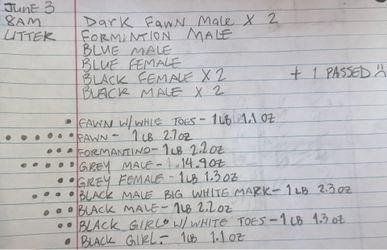 JUNE 3
8AM
LITTER
DARK FAWN MALE X 2
FORMINTION MALE
BLUE MALE
BLUE FEMALE
BLACK FEMALE X 2 + 1 PASSED
BLACK MALE X 2
FAWN W/WHITE TOES - 1LB 1.1OZ
FAWN - 1LB 2.7OZ
FORMANTINO - 1LB 2.2OZ
GREY MALE - 14.9OZ
GREY FEMALE - 1LB 1.3OZ
BLACK MALE BIG WHITE MARK - 1LB 2.3OZ
BLACK MALE - 1LB 2.2OZ
BLACK GIRL W/WHITE TOES - 1LB 1.3OZ
BLACK GIRL - 1LB 1.1OZ